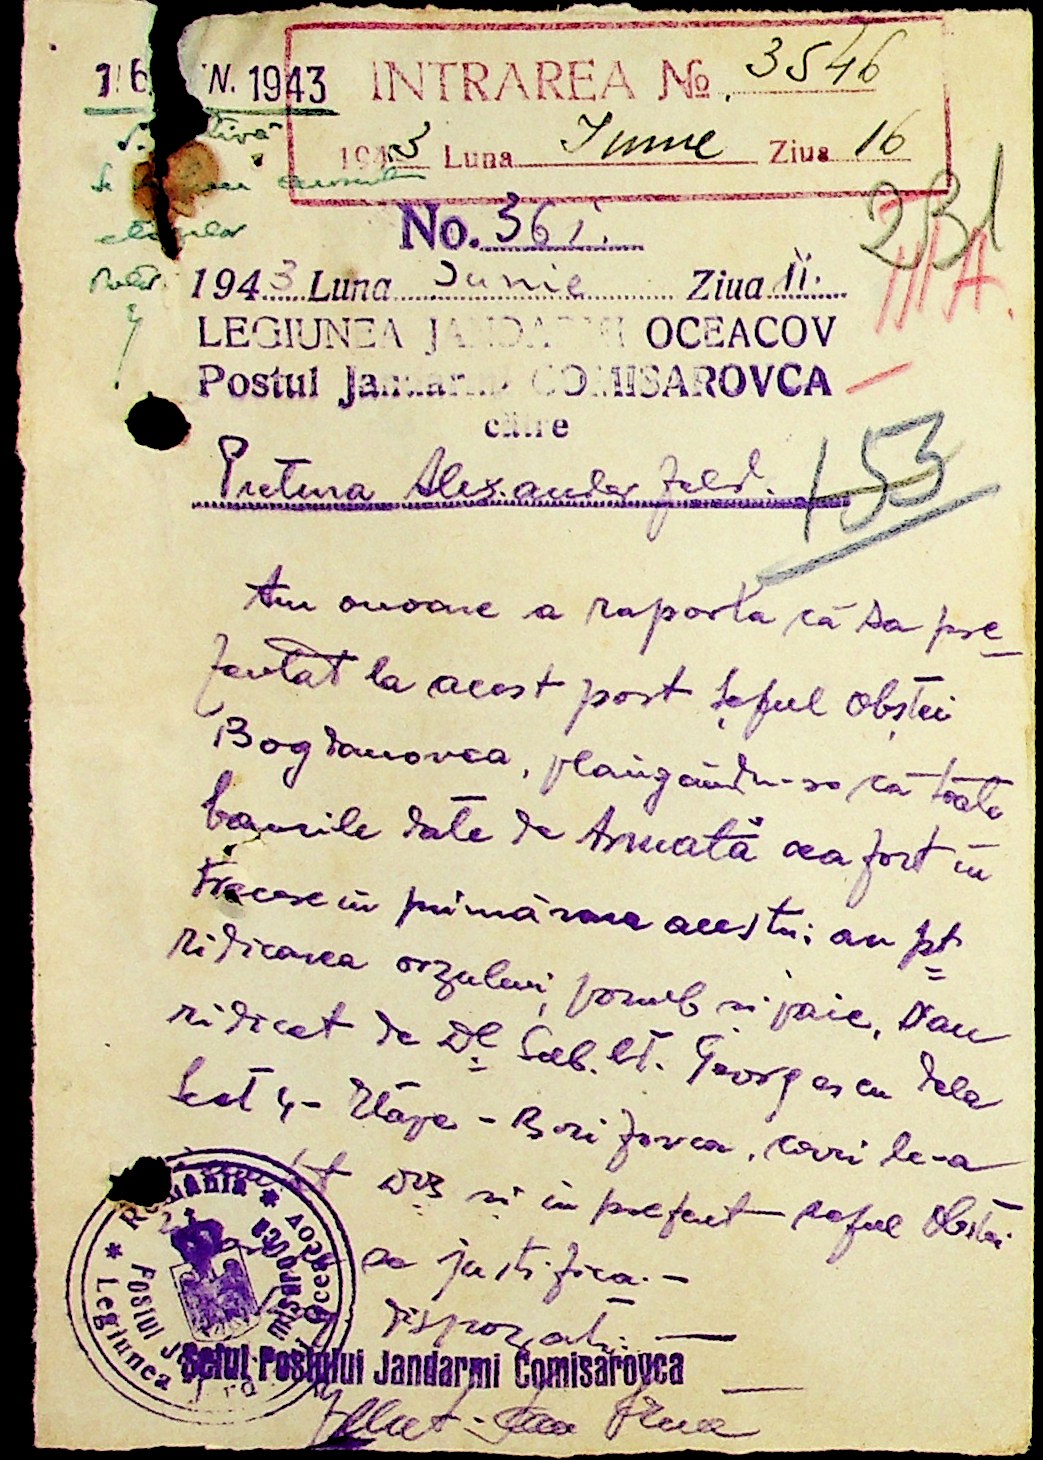 16 IUN. 1943
INTRAREA No. 3546
1943 Luna Iunie Ziua 16
231
III A.
No. 361.
1943 Luna Iunie Ziua 11.
LEGIUNEA JANDARMI OCEACOV
Postul Jandarmi COMISAROVCA
către
Pretura Alexander feld.
153
Am onoare a raporta că sa pre
zentat la acest post șeful obștei
Bogdanovca, plângându-se că toate
banurile date de Armată cea fost în
trecere în primăvara acestui an pt
ridicarea orzului, porumb și paie, sau
ridicat de Dl Sub. Lt. Georgescu dela
Sect 4 - Etape - Borizovca, cari le-a
și în prezent șeful obștei
se justifica. -
dispozați. -
România
Legiunea Oceacov
Șeful Postului Jandarmi Comisarovca